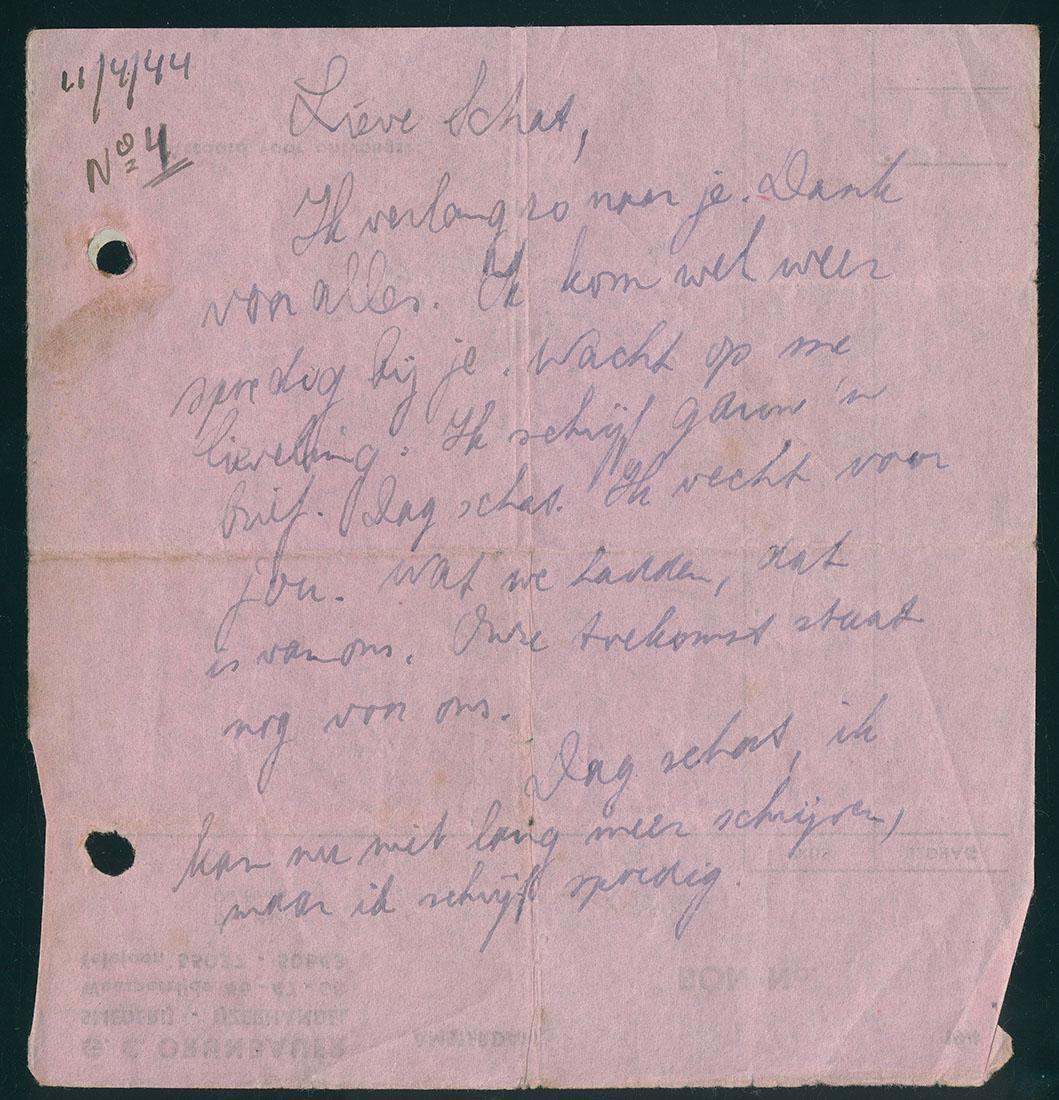 11/4/44
No 4
Lieve Schat,
Ik verlang zo naar je. Dank
voor alles. Ik kom wel weer
spoedig bij je. Wacht op me
lieveling. Ik schrijf gauw 'n
brief. Dag schat. Ik vecht voor
jou. Wat we hadden, dat
is van ons. Onze toekomst staat
nog voor ons.
Dag schat, ik
kan nu niet lang meer schrijven,
maar ik schrijf spoedig.
BEDRAG
Telefoon 55037 -
Weesperzijde
SMEDERIJ - IJZERHANDEL
G. C. GRUNBAUER
AMSTERDAM
BON No.
194